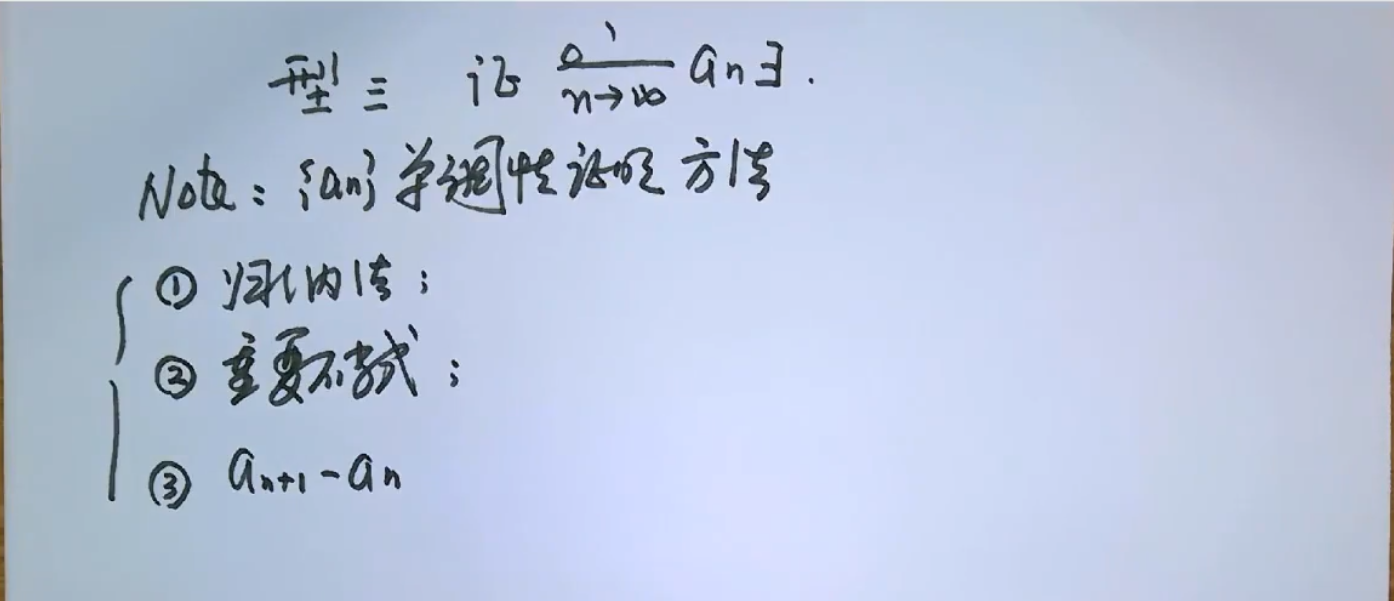 型三 证 lim n→∞ an∃.
Note: {an}单调性证明方法
① 归纳法;
② 重要不等式;
③ an+1-an